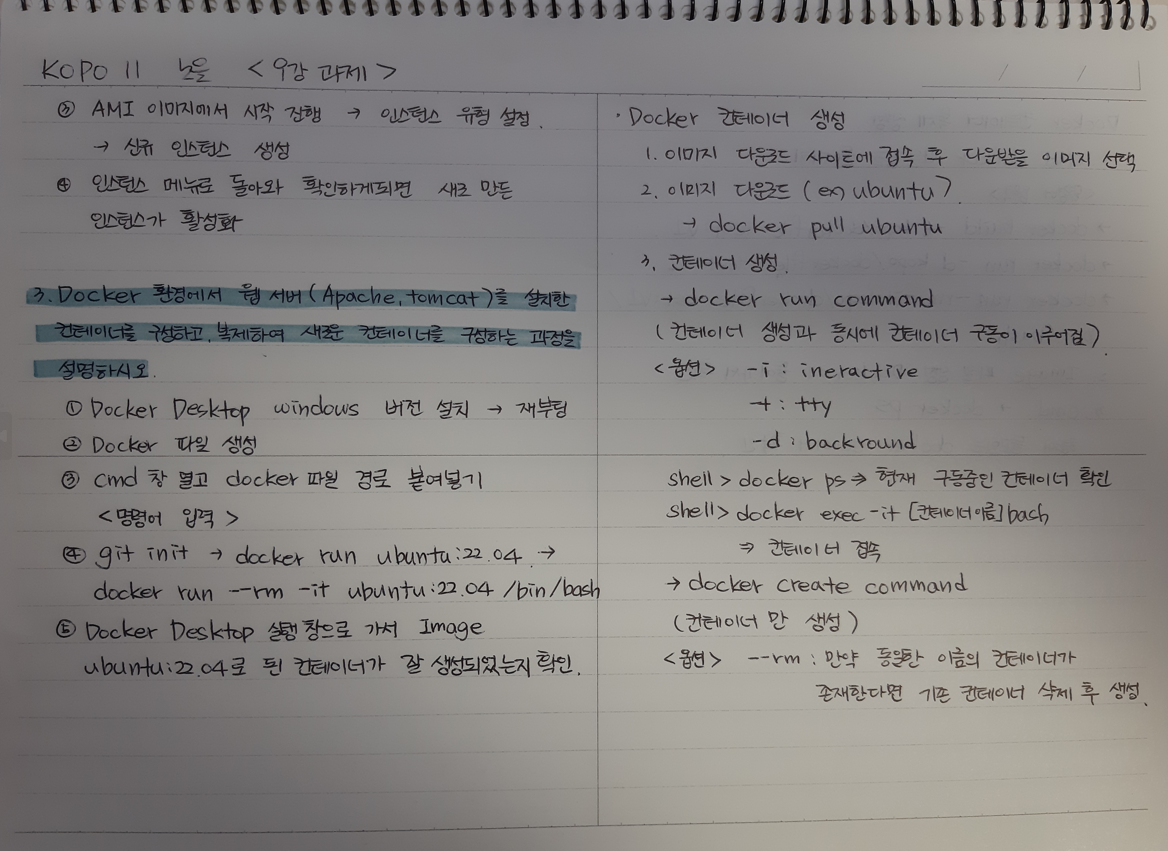 KOPO 11 노을 < 9강 과제 >
③ AMI 이미지에서 시작 진행 → 인스턴스 유형 설정.
→ 신규 인스턴스 생성
④ 인스턴스 메뉴로 돌아와 확인하게되면 새로 만든
인스턴스가 활성화
3. Docker 환경에서 웹 서버(Apache, tomcat)를 설치한
컨테이너를 구성하고, 복제하여 새로운 컨테이너를 구성하는 과정을
설명하시오.
① Docker Desktop windows 버전 설치 → 재부팅
② Docker 파일 생성
③ cmd 창 열고 docker 파일 경로 붙여넣기
<명령어 입력 >
④ git init → docker run ubuntu:22.04 →
docker run --rm -it ubuntu:22.04 /bin/bash
⑤ Docker Desktop 실행 창으로 가서 Image
ubuntu:22.04로 된 컨테이너가 잘 생성되었는지 확인.
· Docker 컨테이너 생성
1. 이미지 다운로드 사이트에 접속 후 다운받을 이미지 선택
2. 이미지 다운로드 (ex) ubuntu).
→ docker pull ubuntu
3. 컨테이너 생성.
→ docker run command
(컨테이너 생성과 동시에 컨테이너 구동이 이루어짐).
<옵션> -i : ineractive
-t : tty
-d : backround
shell > docker ps ⇒ 현재 구동중인 컨테이너 확인
shell > docker exec -it [컨테이너이름] bash
⇒ 컨테이너 접속
→ docker create command
(컨테이너 만 생성)
<옵션> --rm : 만약 동일한 이름의 컨테이너가
존재한다면 기존 컨테이너 삭제 후 생성.